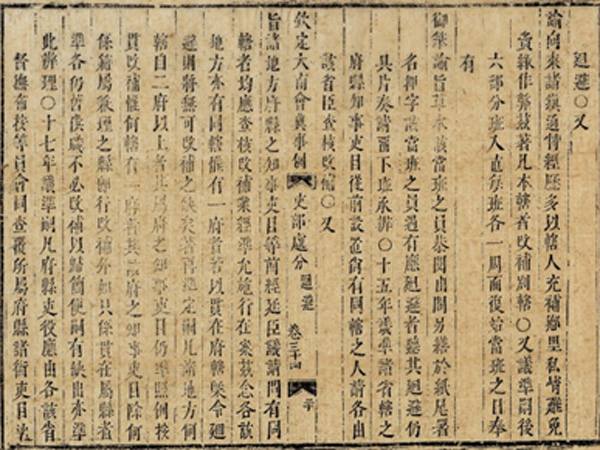 迴避○又
諭向來諸鎮通傳經歷多以轄人充補鄉里私情難免
責報作弊茲著凡本轄者改補別轄○又議準嗣後
六部分班入直每班各一周而復始當班之日奉
有
御筆諭旨草本該當班之員恭閱由間另繕於紙尾署
名押字該當班之員遇有應迴避者聽其迴避仍
具片奏請畱下班承辦○十五年議準諸省轄之
府縣知事吏目從前設置尚有同轄之人請各由
該省臣查核改補○又
欽定大南會典事例 吏部處分 迴避 卷三十四 二十
旨諸地方府縣之知事吏目等前經廷臣議請間有同
轄者均應查核改補業經準允施行在案茲念各該
地方亦有同轄僅有一府者若以貫在府轄槩令迴
避則將無可改補之缺矣著再進定嗣凡諸地方同
轄自二府以上者其以府之知事吏目仍準照例按
貫改補惟何轄有一府者其該府之知事吏目除何
係籍屬兼理之縣即行改補外如只係貫在屬縣者
準各仍舊供職不必改補以歸簡便嗣有缺出亦準
此辦理○十七年議準嗣凡府縣吏役應由各該省
督撫布按等員會同查覈所屬府縣諸衙吏目